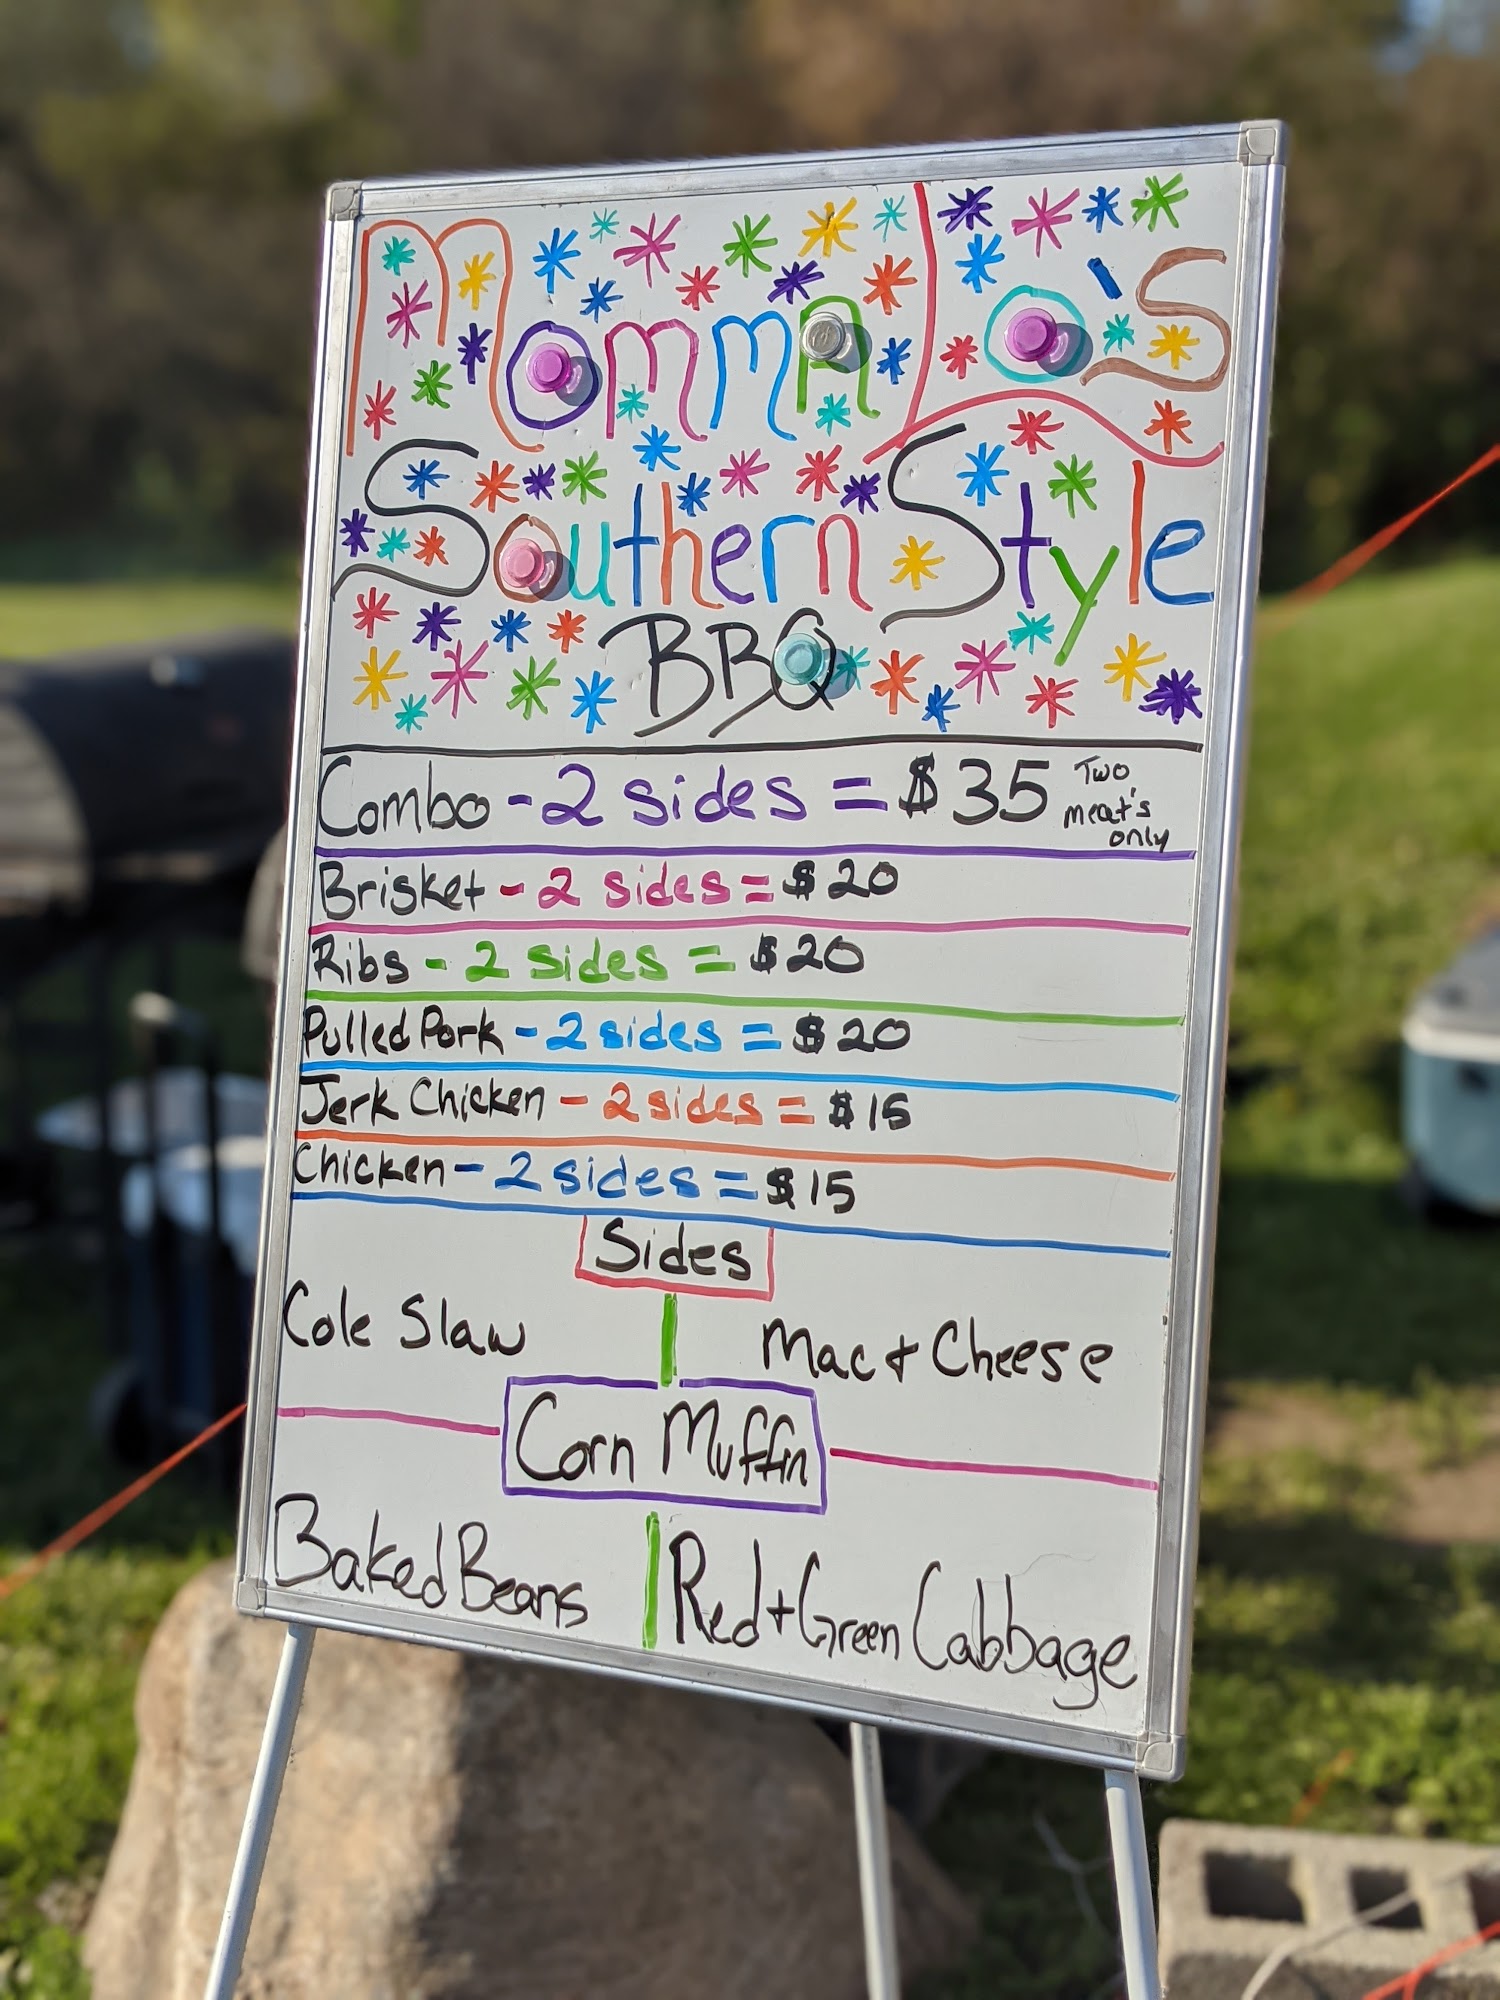 Momma Lo's
Southern Style
BBQ
Combo - 2 sides = $35 Two meat's only
Brisket - 2 sides = $20
Ribs - 2 sides = $20
Pulled Pork - 2 sides = $20
Jerk Chicken - 2 sides = $15
Chicken - 2 sides = $15
Sides
Cole Slaw
Mac + Cheese
Corn Muffin
Baked Beans
Red + Green Cabbage